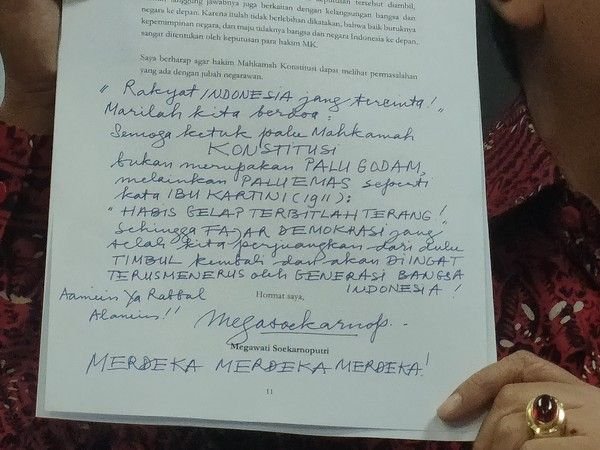 tanggung jawabnya juga berkaitan dengan kelangsungan bangsa dan
negara ke depan. Karena itulah tidak berlebihan dikatakan, bahwa baik buruknya
kepemimpinan negara, dan maju tidaknya bangsa dan negara Indonesia ke depan,
sangat ditentukan oleh keputusan para hakim MK.
Saya berharap agar hakim Mahkamah Konstitusi dapat melihat permasalahan
yang ada dengan jubah negarawan.
" Rakyat INDONESIA jang tercinta! "
Marilah kita berdoa:
Semoga ketuk palu Mahkamah
KONSTITUSI
bukan merupakan PALU GODAM,
melainkan PALU EMAS seperti
kata IBU KARTINI (1911):
" HABIS GELAP TERBITLAH TERANG! "
Sehingga FAJAR DEMOKRASI jang
telah kita perjuangkan dari dulu
TIMBUL kembali dan akan DIINGAT
TERUSMENERUS oleh GENERASI BANGSA
INDONESIA !
Aamiin Ya Rabbal
Alamiin!!
Hormat saya,
Megawati Soekarnoputri
MERDEKA MERDEKA MERDEKA!
11